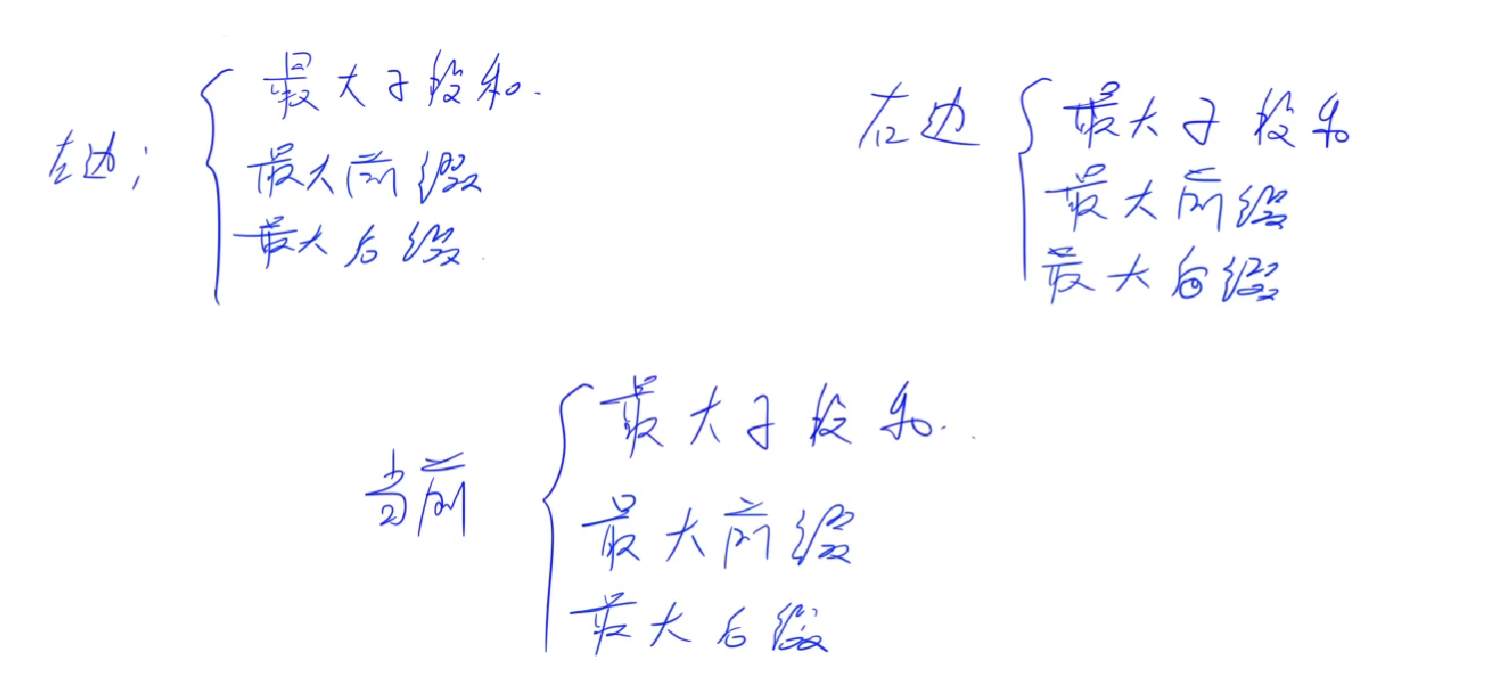 左边;
最大子段和.
最大前缀
最大后缀
右边
最大子段和
最大前缀
最大后缀
当前
最大子段和.
最大前缀
最大后缀